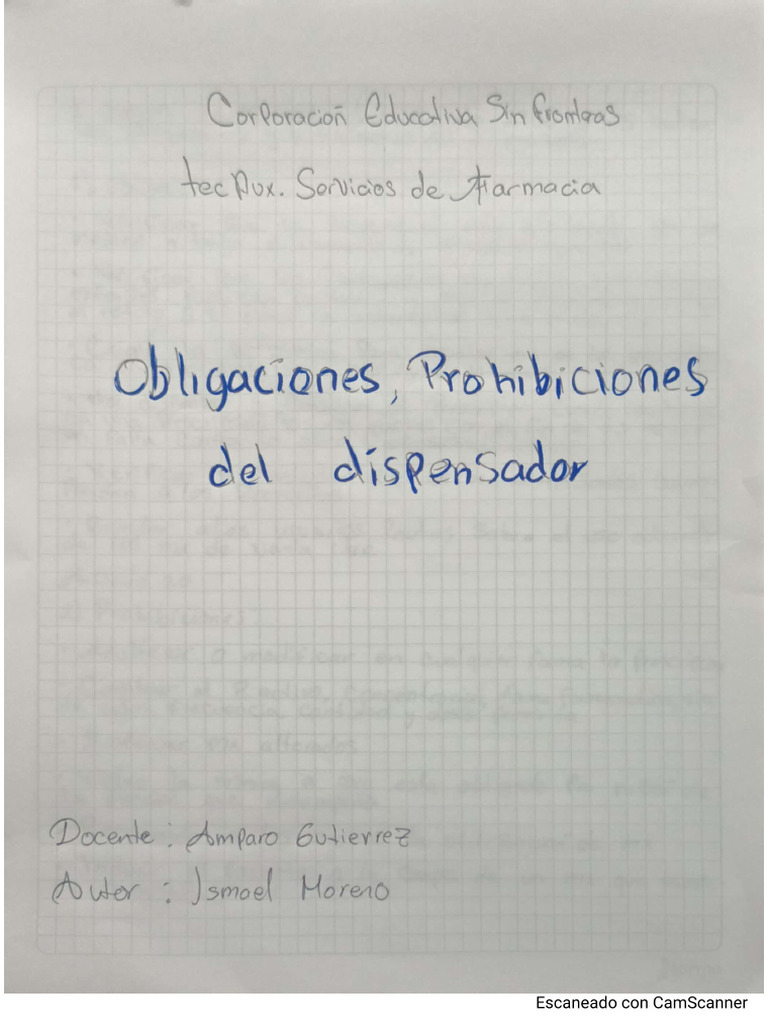 Corporación Educativa Sin fronteras
tec Aux. Servicios de Farmacia
Obligaciones, Prohibiciones
del dispensador
Docente: Amparo Gutierrez
Autor : Ismael Moreno
Escaneado con CamScanner